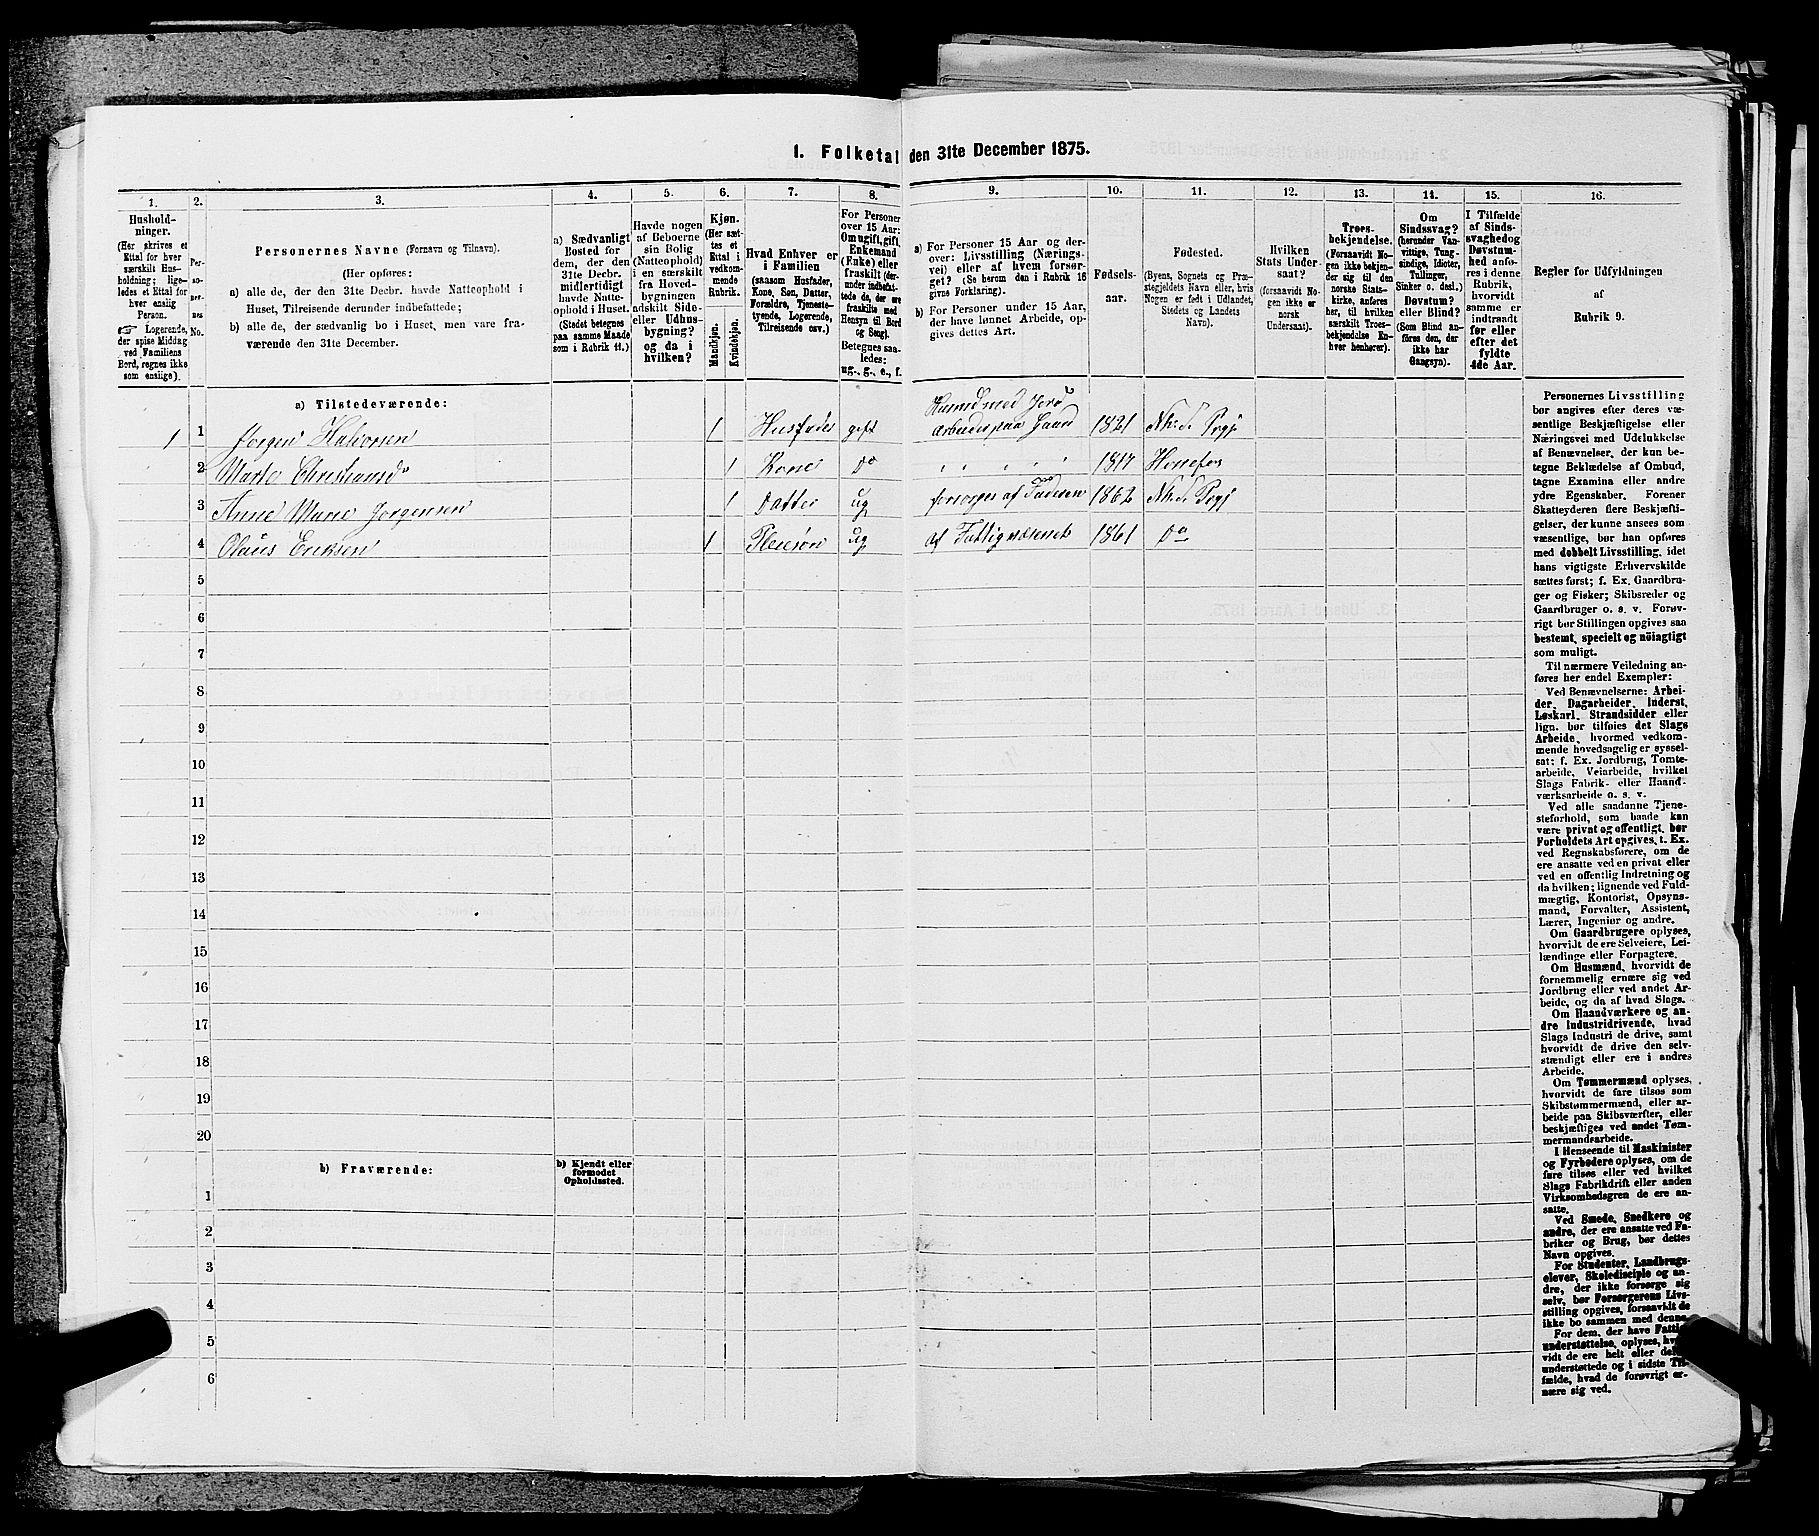 1. Folketal den 31te December 1875.
1.
2.
3.
4.
5.
6.
7.
8.
9.
10.
11.
12.
13.
14.
15.
16.
Hushold-
ninger.
(Her skrives et
Ettal for hver
særskilt Hus-
holdning; lige-
ledes et Ettal for
hver enslig
Person.
☞ Logerende,
der spise Middag
ved Familiens
Bord, regnes ikke
som enslige).
Per-
so-
ner-
nes
No.
Personernes Navne (Fornavn og Tilnavn).
(Her opføres:
a) alle de, der den 31te Decbr. havde Natteophold i
Huset, Tilreisende derunder indbefattede;
b) alle de, der sædvanlig bo i Huset, men vare fra-
værende den 31te December.
a) Sædvanligt
Bosted for
dem, der den
31te Decbr.
midlertidigt
havde Natte-
ophold i Huset.
(Stedet betegnes
paa samme Maade
som i Rubrik 11.)
Havde nogen
af Beboerne
sin Bolig
(Natteophold)
i en særskilt
fra Hoved-
bygningen
adskilt Side-
eller Udhus-
bygning?
og da i
hvilken?
Kjøn.
(Her sæt-
tes et
Ettal i
vedkom-
mende
Rubrik.
Mandkjøn.
Kvindekjøn.
Hvad Enhver er
i Familien
(saasom Husfader,
Kone, Søn, Datter,
Forældre, Tjeneste-
tyende, Logerende,
Tilreisende osv.)
For Personer
over 15 Aar:
Om ugift, gift,
Enkemand
(Enke) eller
fraskilt (der-
under indbefat-
tede de, der ere
fraskilte med
Hensyn til Bord
og Seng).
Betegnes saa-
ledes:
ug., g., e., f.
a) For Personer 15 Aar og der-
over: Livsstilling (Nærings-
vei) eller af hvem forsør-
get? (Se herom den i Rubrik 16
givne Forklaring).
b) For Personer under 15 Aar,
der have lønnet Arbeide, op-
gives dettes Art.
Fødsels-
aar.
Fødested.
(Byens, Sognets og Præ-
stegjeldets Navn eller, hvis
Nogen er født i Udlandet,
Stedets og Landets
Navn).
Hvilken
Stats Under-
saat?
(forsaavidt No-
gen ikke er
norsk
Undersaat).
Troes-
bekjendelse.
(Forsaavidt No-
gen ikke bekjen-
der sig til den
norske Stats-
kirke, anføres
her, til hvilken
særskilt Troes-
bekjendelse En-
hver henhører).
Om
Sindssvag?
(herunder Van-
vittige, Tung-
sindige, Idioter,
Tullinger,
Sinker o. desl.)
Døvstum?
eller Blind?
(Som Blind an-
føres den, der
ikke har
Gangsyn).
I Tilfælde
af Sinds-
svaghed og
Døvstum-
hed anfø-
res i denne
Rubrik,
hvorvidt
samme er
indtraadt
før eller
efter det
fyldte
4de Aar.
Regler for Udfyldningen
af
Rubrik 9.
a) Tilstedeværende:
1 1 Jørgen Halvorsen 1 Husfader gift Husmd med Jord arbeider paa Gaard 1821 Nh:d Pgj
2 Marte Christiansd 1 Kone do " " " " 1817 Hønefos
3 Anne Marie Jørgensen 1 Datter ug forsørges af Faderen 1862 Nh:d Pgj
4 Olaus Eriksen 1 Pleiesøn ug af Fattigvæsenet 1861 do
5
6
7
8
9
10
11
12
13
14
15
16
17
18
19
20
b) Fraværende:
b) Kjendt eller
formodet
Opholdssted.
1
2
3
4
5
6
Personernes Livsstilling
bør angives efter deres væ-
sentlige Beskjæftigelse eller
Næringsvei med Udelukkelse
af Benævnelser, der kun be-
tegne Beklædelse af Ombud,
tagne Examina eller andre
ydre Egenskaber. Forener
Skatteyderen flere Beskjæfti-
gelser, der kunne ansees som
væsentlige, bør han opføres
med dobbelt Livsstilling, idet
hans vigtigste Erhvervskilde
sættes først; f. Ex. Gaardbru-
ger og Fisker; Skibsreder og
Gaardbruger o. s. v. Forøv-
rigt bør Stillingen opgives saa
bestemt, specielt og nøiagtigt
som muligt.
Til nærmere Veiledning an-
føres her endel Exempler:
Ved Benævnelserne: Arbei-
der, Dagarbeider, Inderst,
Løskarl, Strandsidder eller
lign. bør tilføies det Slags
Arbeide, hvormed vedkom-
mende hovedsagelig er syssel-
sat; f. Ex. Jordbrug, Tomte-
arbeide, Veiarbeide, hvilket
Slags Fabrik- eller Haand-
værksarbeide o. s. v.
Ved alle saadanne Tjene-
steforhold, som baade kan
være privat og offentligt, bør
Forholdets Art opgives, t. Ex.
ved Regnskabsførere, om de
ere ansatte ved en privat eller
ved en offentlig Indretning og
da hvilken; lignende ved Fuld-
mægtig, Kontorist, Opsyns-
mand, Forvalter, Assistent,
Lærer, Ingeniør og andre.
Om Gaardbrugere oplyses,
hvorvidt de ere Selveiere, Lei-
lændinge eller Forpagtere.
Om Husmænd, hvorvidt de
fornemmelig ernære sig ved
Jordbrug eller ved andet Ar-
beide, og da af hvad Slags.
Om Haandværkere og an-
dre Industridrivende, hvad
Slags Industri de drive, samt
hvorvidt de drive den selv-
stændigt eller ere i andres
Arbeide.
Om Tømmermænd oplyses,
hvorvidt de fare tilsøs som
Skibstømmermænd, eller ar-
beide paa Skibsværfter, eller
beskjæftiges ved andet Tøm-
mermandsarbeide.
I Henseende til Maskinister
og Fyrbødere oplyses, om de
fare tilsøs eller ved hvilket
Slags Fabrikdrift eller anden
Virksomhedsgren de ere an-
satte.
Ved Smede, Snedkere og
andre, der ere ansatte ved Fa-
briker og Brug, bør dettes
Navn opgives.
For Studenter, Landbrugs-
elever, Skoledisciple og an-
dre, der ikke forsørge sig
selv, bør Forsørgerens Livs-
stilling opgives, forsaavidt de
ikke bo sammen med denne.
For dem, der have Fattig-
understøttelse, oplyses, hvor-
vidt de ere helt eller delvis
understøttede og i sidste Til-
fælde, hvad de forøvrigt er-
nære sig ved.